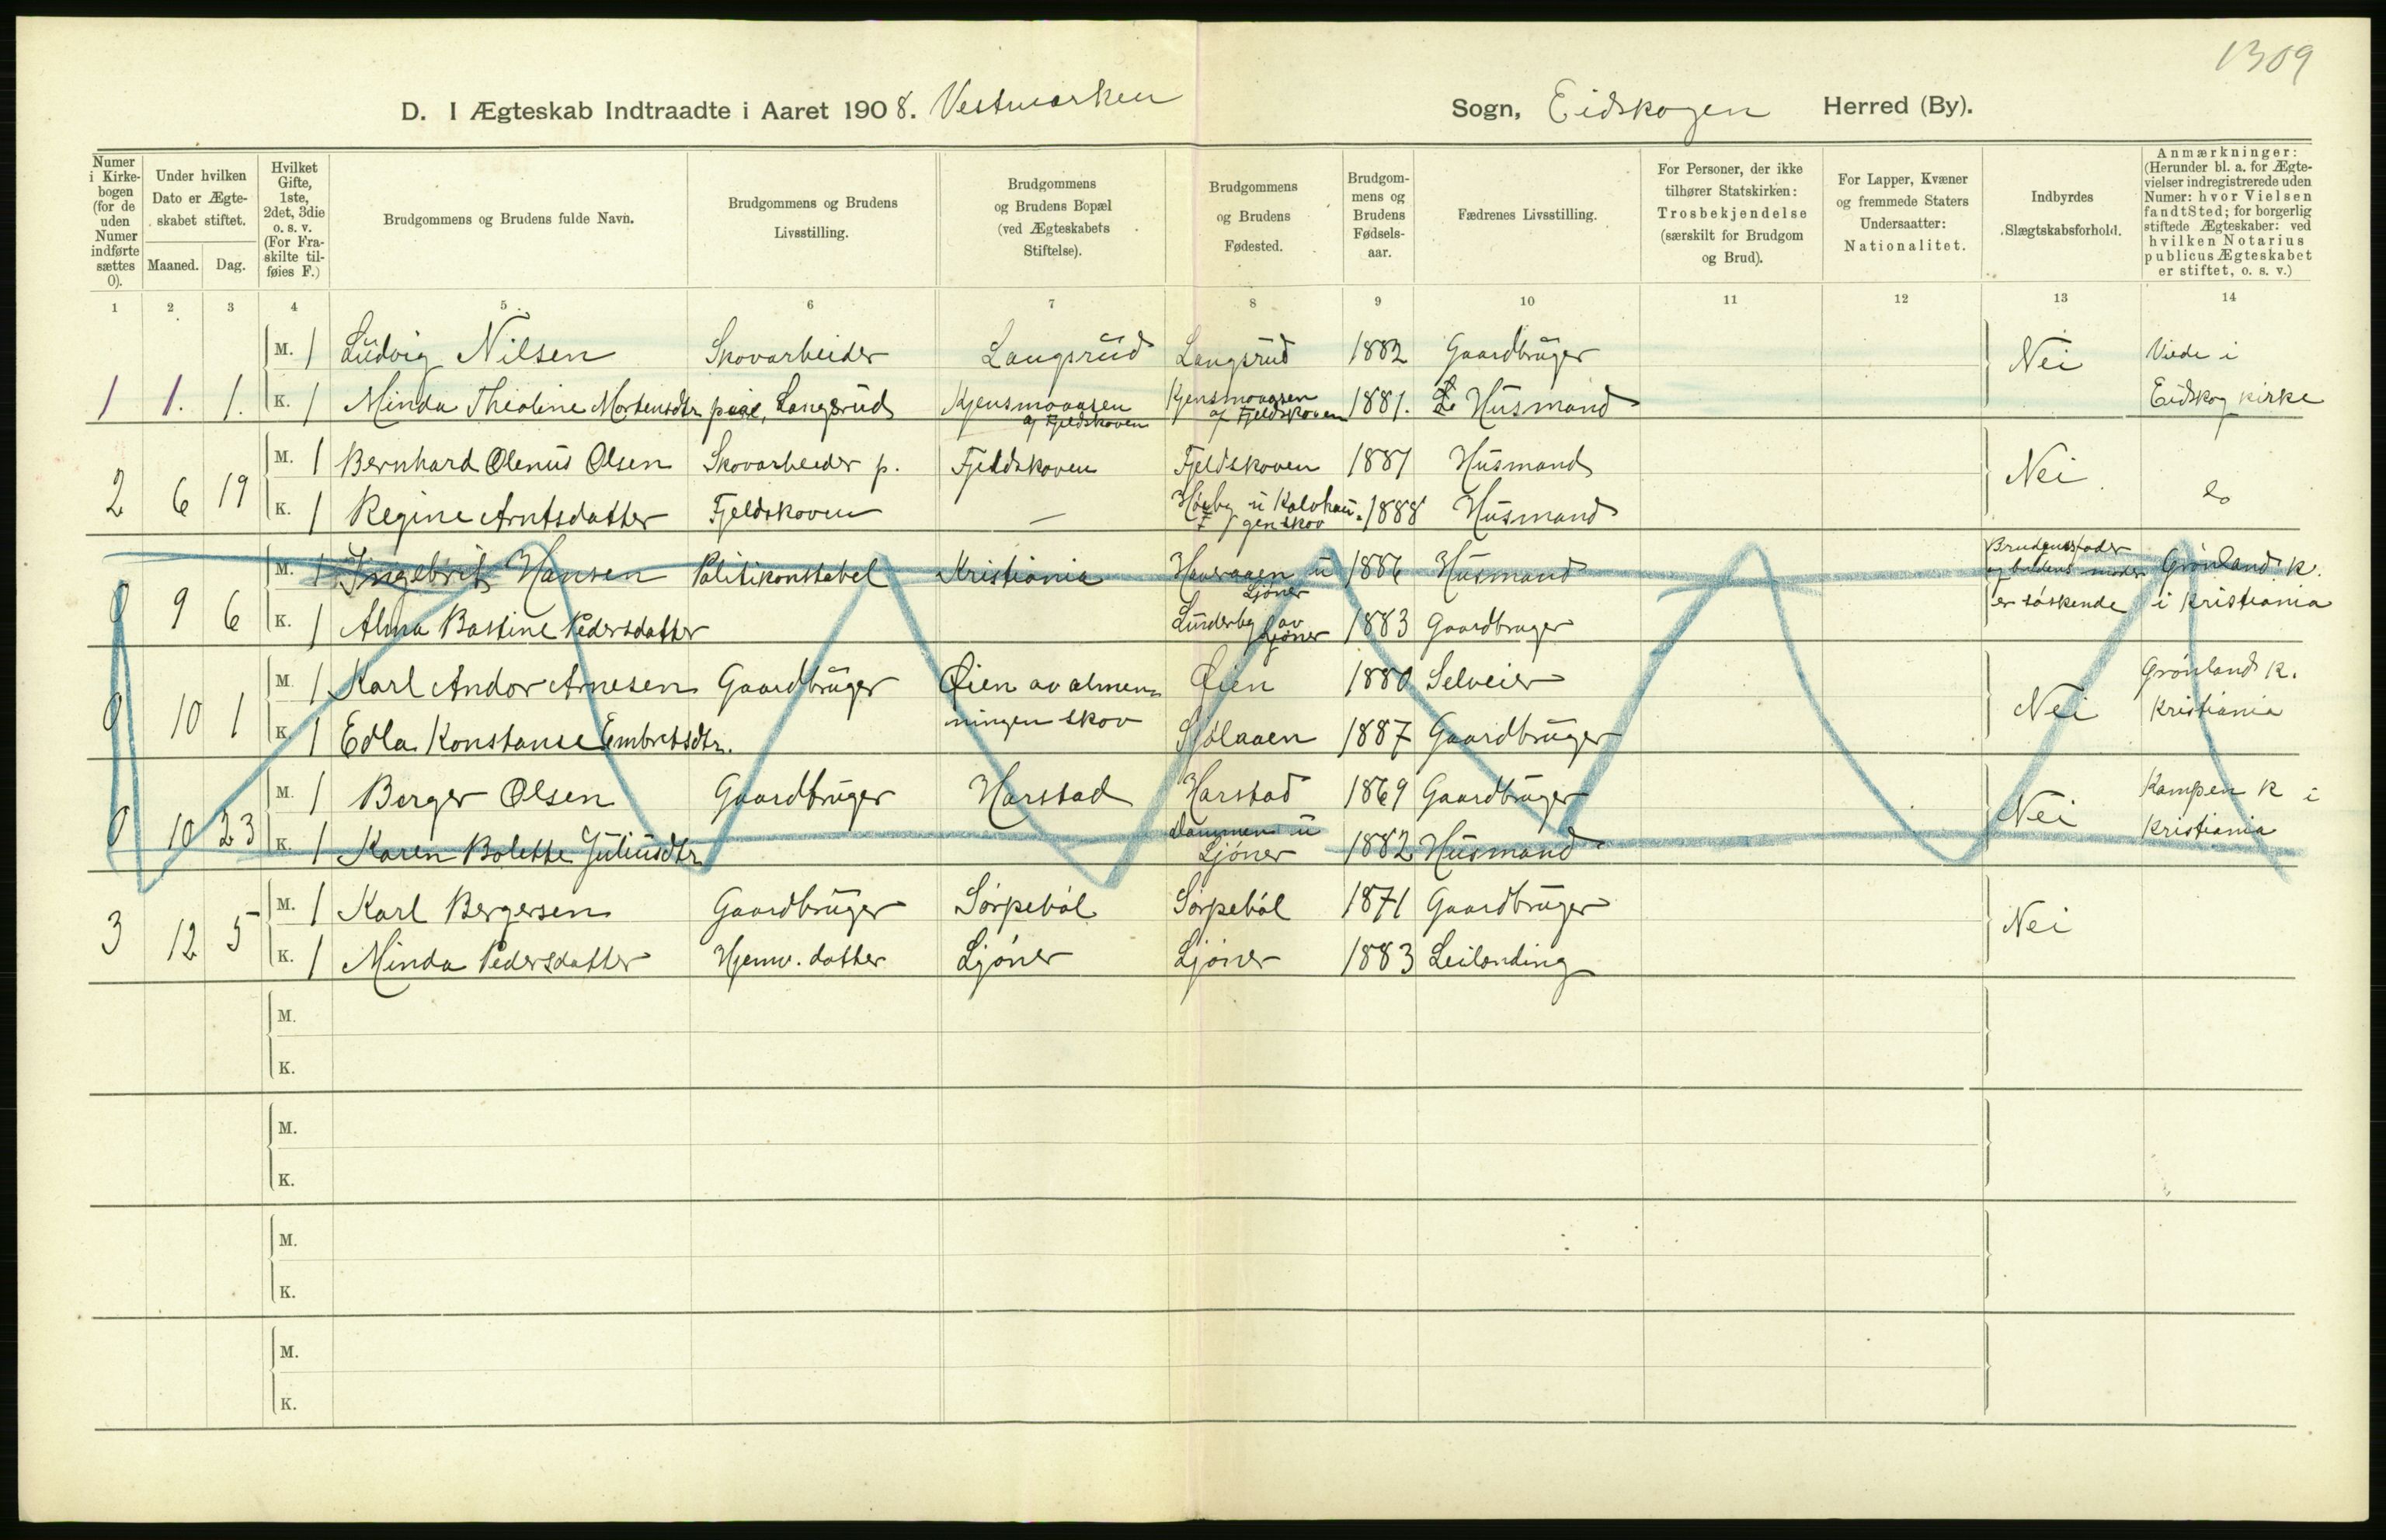 1309
D. I Ægteskab Indtraadte i Aaret 1908. Vestmarken Sogn, Eidskogen Herred (By).
Numer i Kirkebogen (for de uden Numer indførte sættes 0).
Under hvilken Dato er Ægteskabet stiftet.
Maaned. Dag.
Hvilket Gifte, 1ste, 2det, 3die o. s. v. (For Fraskilte tilføies F.)
Brudgommens og Brudens fulde Navn.
Brudgommens og Brudens Livsstilling.
Brudgommens og Brudens Bopæl (ved Ægteskabets Stiftelse).
Brudgommens og Brudens Fødested.
Brudgommens og Brudens Fødselsaar.
Fædrenes Livsstilling.
For Personer, der ikke tilhører Statskirken: Trosbekjendelse (særskilt for Brudgom og Brud).
For Lapper, Kvæner og fremmede Staters Undersaatter: Nationalitet.
Indbyrdes Slægtskabsforhold.
Anmærkninger: (Herunder bl. a. for Ægtevielser indregistrerede uden Numer: hvor Vielsen fandt Sted; for borgerlig stiftede Ægteskaber: ved hvilken Notarius publicus Ægteskabet er stiftet, o. s. v.)
1 2 3 4 5 6 7 8 9 10 11 12 13 14
M. 1 Ludvig Nilsen Skovarbeider Langsrud Langsrud 1882 Gaardbruger Nei Viede i
1 1. 1. K. 1 Minda Theoline Mortensdtr pige, Langsrud Kjensmoaasen af Fjeldskoven Kjensmoaasen af Fjeldskoven 1881. Husmand Eidskog kirke
M. 1 Bernhard Olenus Olsen Skovarbeider p. Fjeldskoven Fjeldskoven 1881 Husmand Nei
2 6 19 K. 1 Regine Arntsdatter Fjeldskoven — 1888 Husmand
M. 1 Ingebrit Hansen Politikonstabel Kristiania u Ljöner 1886 Husmand Brudens fader og moder Grönland k.
0 9 6 K. 1 Alma Bastine Pedersdatter Lunderby av Ljöner 1883 Gaardbruger er søskende i Kristiania
M. 1 Karl Andor Arnesen Gaardbruger Øien av almen- Øien 1880 Selveier Nei Grönland k.
0 10 1 K. 1 Edla Konstanse Embretsdtr. ningen skov 1887 Gaardbruger Kristiania
M. 1 Berger Olsen Gaardbruger Harstad Harstad 1869 Gaardbruger Nei Kampen k i
0 10 23 K. 1 Karen Bolette Juliusdtr Dammen u Ljöner 1882 Husmand Kristiania
M. 1 Karl Bergersen Gaardbruger Sörpeböl Sörpeböl 1871 Gaardbruger Nei
3 12 5 K. 1 Minda Pedersdatter Hjemv. datter Ljöner Ljöner 1883 Leilending
M.
K.
M.
K.
M.
K.
M.
K.